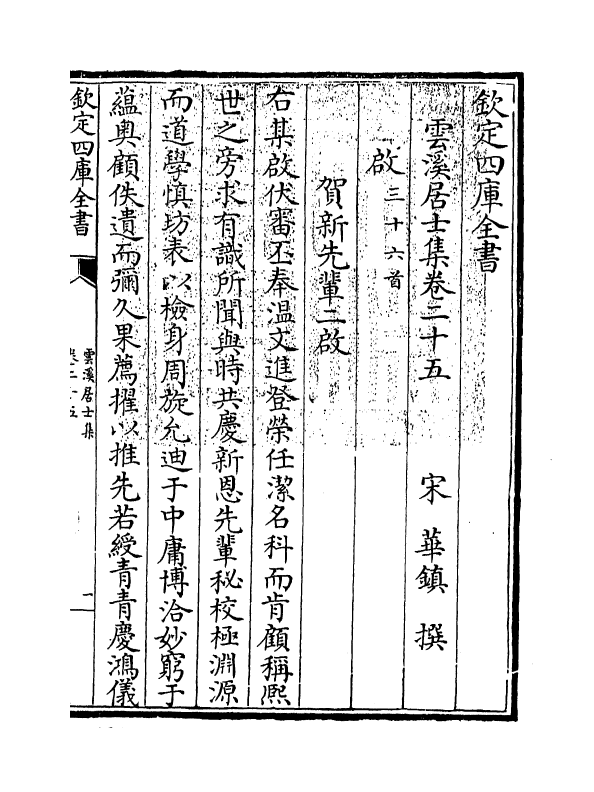 欽定四庫全書
雲溪居士集卷二十五　宋　華鎮　撰
啟三十六首
賀新先輩二啟
右某啟伏審丕奉溫文進登榮任潔名科而肯顧稱熙
世之旁求有識所聞與時共慶新恩先輩秘校極淵源
而道學慎坊表以檢身周旋允迪于中庸博洽妙窮于
蘊奥顧佚遺而彌久果薦擢以推先若綬青青慶鴻儀
欽定四庫全書
雲溪居士集
卷二十五
一